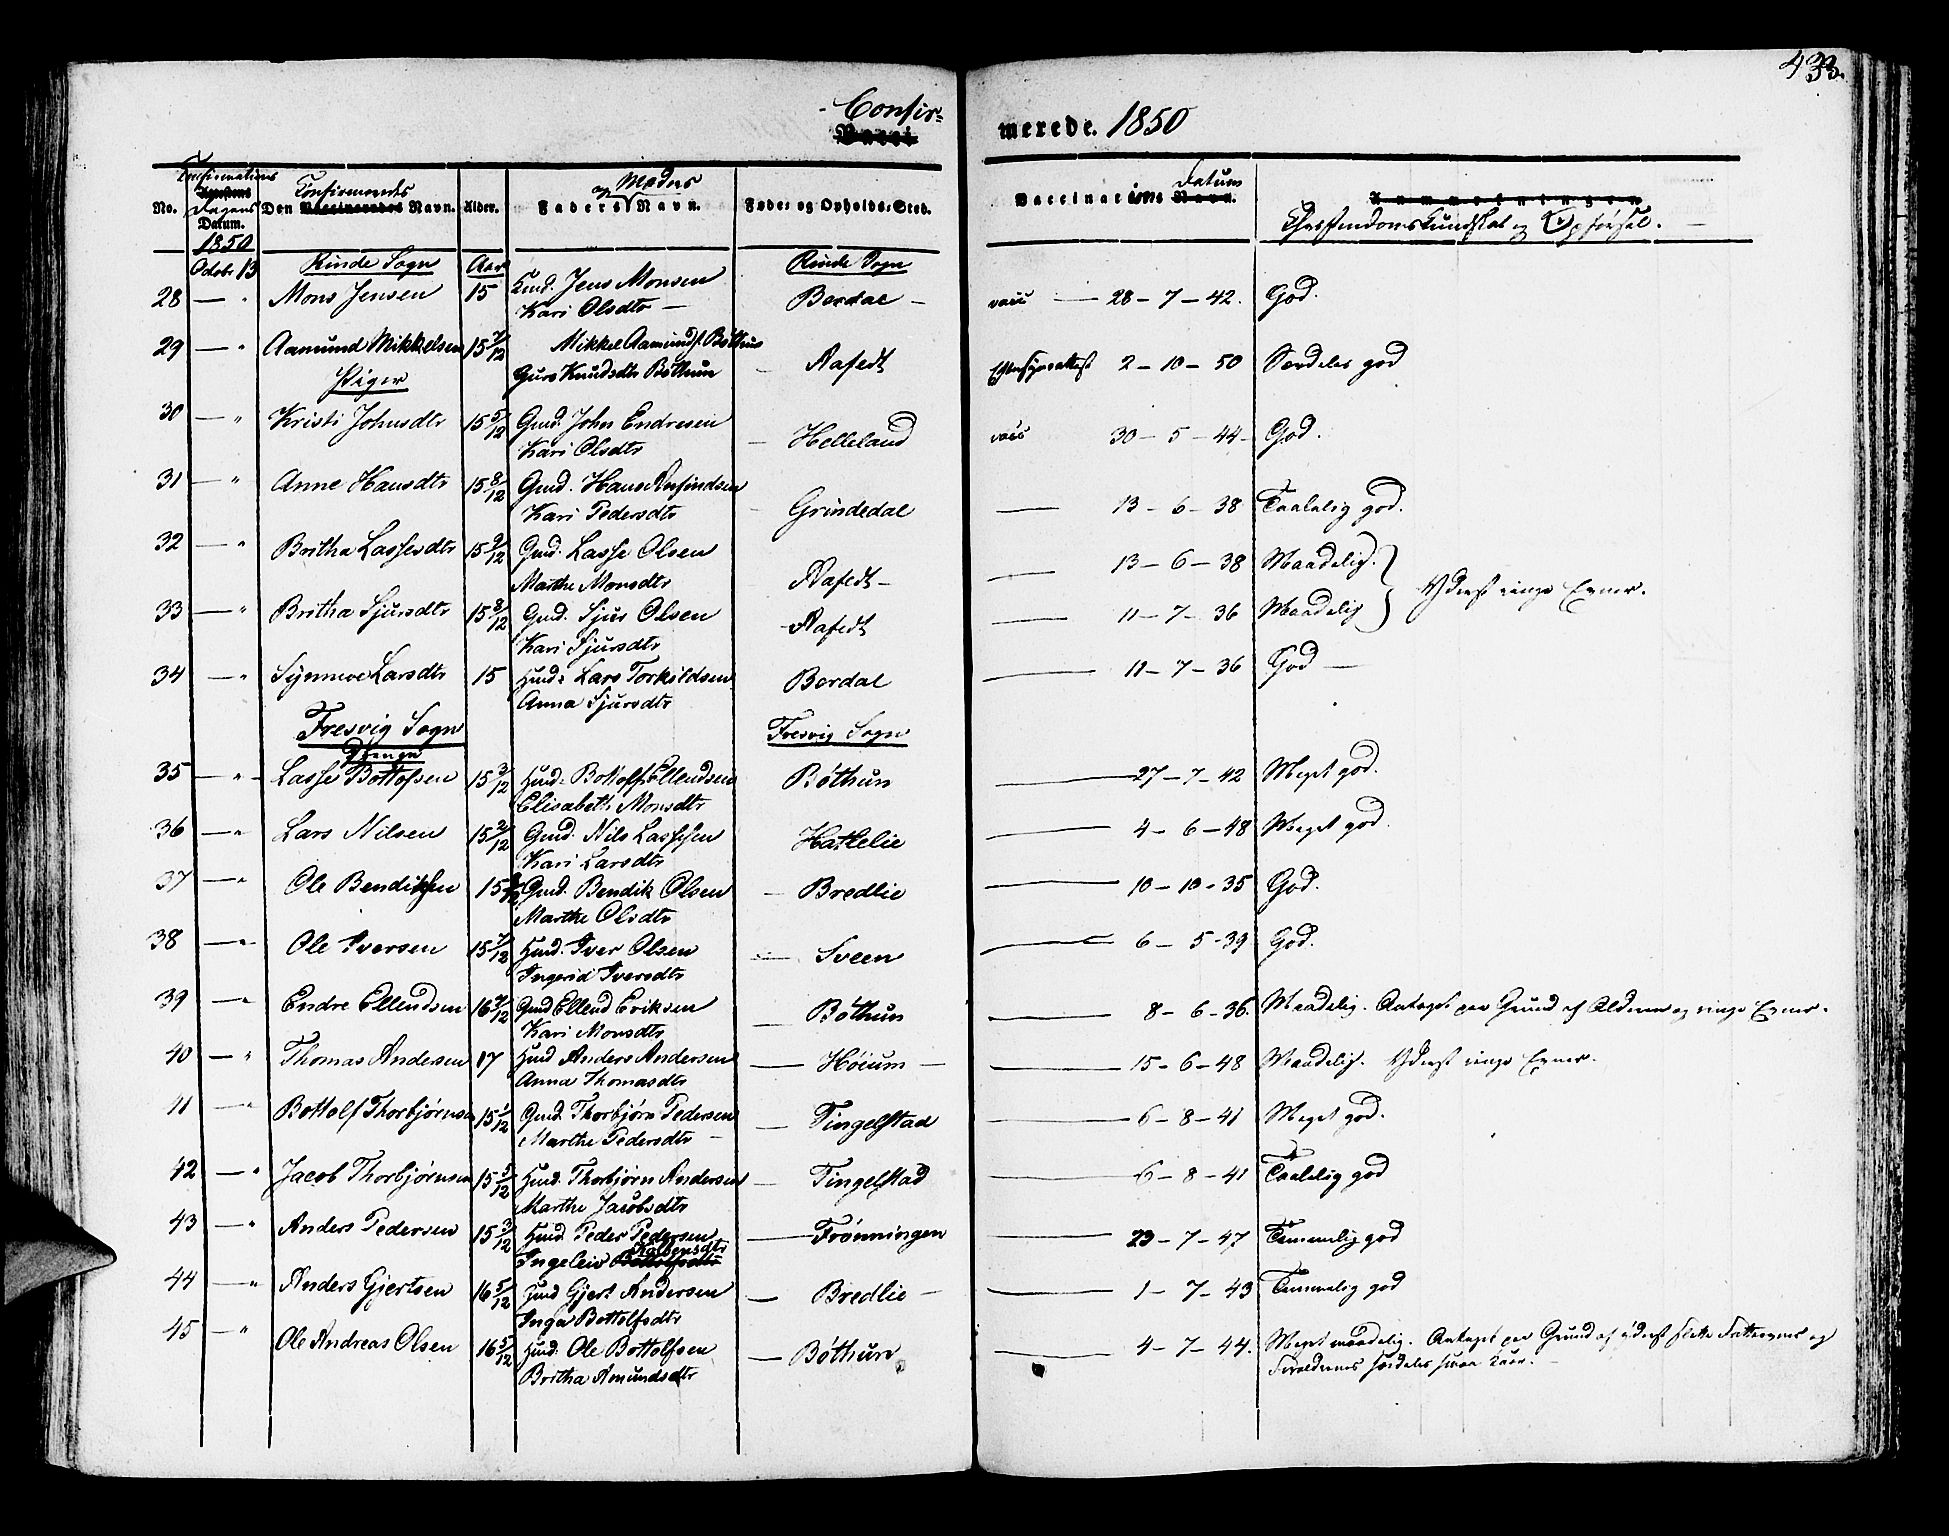 433.
Confir= merede. 1850
Vacci
No. Confirmations Dagens Datum. Den Confirmeredes Vaccineredes Navn. Alder. Faders og Moders Navn. Føde- og Opholds-Sted. Vaccinations Datum Navn. Anmærkninger
Christendomskundskab og Opførsel.
1850
Octobr 13 Rinde Sogn Aar Rinde Sogn
28 — " Mons Jensen 15 Hmd. Jens Monsen Bordal — vacc — 28 - 7 - 42. God.
Kari Olsdtr —
29 — " Aamund Mikkelsen 15 7/12 Mikkel Aamunds. Bøthun — Aafedt 2 - 10 - 50 Særdeles god
Guro Knudsdtr Bøthun
Piger
30 — " Kristi Johnsdtr 15 5/12 Gmd. John Endresen — Helleland vacc 30 - 5 - 44 - God.
Kari Olsdtr
31 — " Anne Hansdtr 15 8/12 Gmd. Hans Anfindsen — Grindedal — 13 - 6 - 38 Taalelig god.
Kari Pedersdtr
32 — " Britha Lassesdtr 15 9/12 Gmd. Lasse Olsen Aafedt — — 13 - 6 - 38 Maadelig. } Yderst ringe Evner.
Marthe Monsdtr
33 — " Britha Sjursdtr 15 8/12 Gmd. Sjur Olsen — Aafedt — 11 - 7 - 36 Maadelig
Kari Sjursdtr
34 — " Synneve Larsdtr 15 Hmd: Lars Torkildsen Bordal — 11 - 7 - 36 God —
Anna Sjursdtr
Fresvig Sogn Fresvig Sogn
Drenge
35 — " — Lasse Bottofsen 15 3/12 Hmd: Bottolf Ellendsen Bøthun — 27 - 7 - 42 Meget god.
Elisabeth Monsdtr
36 — " Lars Nilsen 15 2/12 Gmd. Nils Lassesen Hatlelie — 4 - 6 - 48 Meget god.
Kari Larsdtr
37 — " Ole Bendiksen 15 Gmd. Bendik Olsen — Bredlie — 10 - 10 - 35 God.
Marthe Olsdtr
38 — " Ole Iversen 15 7/12 Hmd. Iver Olsen — Sveen — 6 - 5 - 39 God.
Ingerid Iversdtr
39 — " Endre Ellendsen 16 7/12 Gmd Ellend Eriksen — Bøthun — 8 - 6 - 36. Maadelig. Antaget paa Grund af Alderen og ringe Evner.
Kari Monsdtr
40 — " Thomas Andersen 17 Hmd Anders Andersen — Høium — — 15 - 6 - 48 Maadelig. Yderst ringe Evner.
Anna Thomasdtr
41 — " Bottolf Thorbjørnsen 15 1/12 Gmd. Thorbjørn Pedersen — Tingelstad — 6 - 8 - 41 Meget god.
Marthe Pedersdtr —
42 — " Jacob Thorbjørnsen 15 5/12 Hmd. Thorbjørn Andersen — Tingelstad — 6 - 8 - 41 Taalelig god
Marthe Jacobsdtr
43 — " Anders Pedersen 15 3/12 Hmd Peder Pedersen — Frønningen — 23 - 7 - 47 Temmelig god
Ingeleiv Bottolfsdtr
44 — " Anders Gjertsen 16 5/12 Hmd Gjert Andersen — Bredlie — — 1 - 7 - 43 Temmelig god
Inga Bottolfsdtr
45 — " Ole Andreas Olsen 16 5/12 Hmd: Ole Bottolfsen — Bøthun — 4 - 7 - 44. Meget maadelig. Antaget paa Grund af yderst slette Fatteevner og
Britha Amundsdtr Forældrenes særdeles